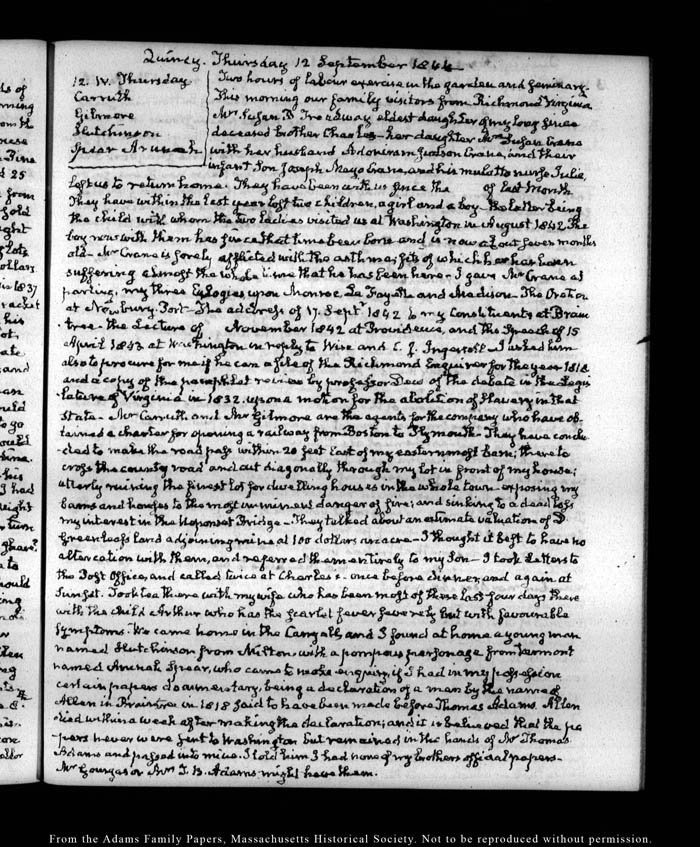 Quincy. Thursday 12 September 1844
12. IV. Thursday
Carruth
Gilmore
Hutchinson
Spear Avunah
Two hours of labour exercise in the garden and Seminary.
This morning our family visitors from Richmond Virginia,
Mrs. Susan B Treadway eldest daughter of my long since
deceased brother Charles - her daughter Mrs Susan Crane
with her husband Adoniram Judson Crane, and their
infant Son Joseph Mayo Crane, and his mulatto nurse Julia,
left us to return home. They have been with us since the of last Month
They have within the last year lost two children, a girl and a boy - the latter being
the child with whom the two Ladies visited us at Washington in August 1842. The
boy now with them has since that time been born and is now about seven months
old - Mr Crane is sorely afflicted with the asthma, fits of which he has been
suffering almost the whole time that he has been here. I gave Mr Crane at
parting, my three Eulogies upon Monroe, La Fayette and Madison - The Oration
at Newbury-Port - The address of 17. Septr 1842 to my Constituents at Brain
tree - the Lecture of November 1842 at Providence, and the Speech of 15
April 1843 at Washington in reply to Wise and C. J. Ingersoll - I asked him
also to procure for me if he can a file of the Richmond Enquirer for the year 1818
and a copy of the pamphlet review by professor Dew of the debate in the Legis
lature of Virginia in 1832. upon a motion for the abolition of Slavery in that
State - Mr Carruth and Mr Gilmore are the agents for the company who have ob-
tained a charter for opening a railway from Boston to Plymouth - They have conclu-
ded to make the road pass within 20 feet East of my easternmost barn; there to
cross the county road and cut diagonally through my lot in front of my house;
utterly ruining the finest lot for dwelling houses in the whole town - exposing my
barns and houses to the most imminent danger of fire; and sinking to a dead loss
my interest in the Neponset Bridge - They talked about an estimate valuation of D.
Greenleaf's land adjoining mine at 100 dollars an acre - I thought it best to have no
altercation with them, and referred them entirely to my Son - I took Letters to
the Post Office, and called twice at Charles's - once before dinner, and again at
Sunset. Took tea there with my wife who has been most of these last four days there
with the child Arthur who has the scarlet fever severely but with favourable
symptoms. We came home in the Carryall, and I found at home a young man
named Hutchinson from Milton, with a pompous personage from Vermont
named Avunah Spear, who came to make enquiry, if I had in my possession
certain papers documentary, being a declaration of a man by the name of
Allen in Braintree in 1818 said to have been made before Thomas Adams. Allen
died within a week after making the declaration; and it is believed that the pa
pers never were sent to Washington but remained in the hands of Mr Thomas
Adams and passed into mine. I told him I had none of my brothers official papers -
Mr Gourgas or Mrs T. B. Adams might have them.
From the Adams Family Papers, Massachusetts Historical Society. Not to be reproduced without permission.